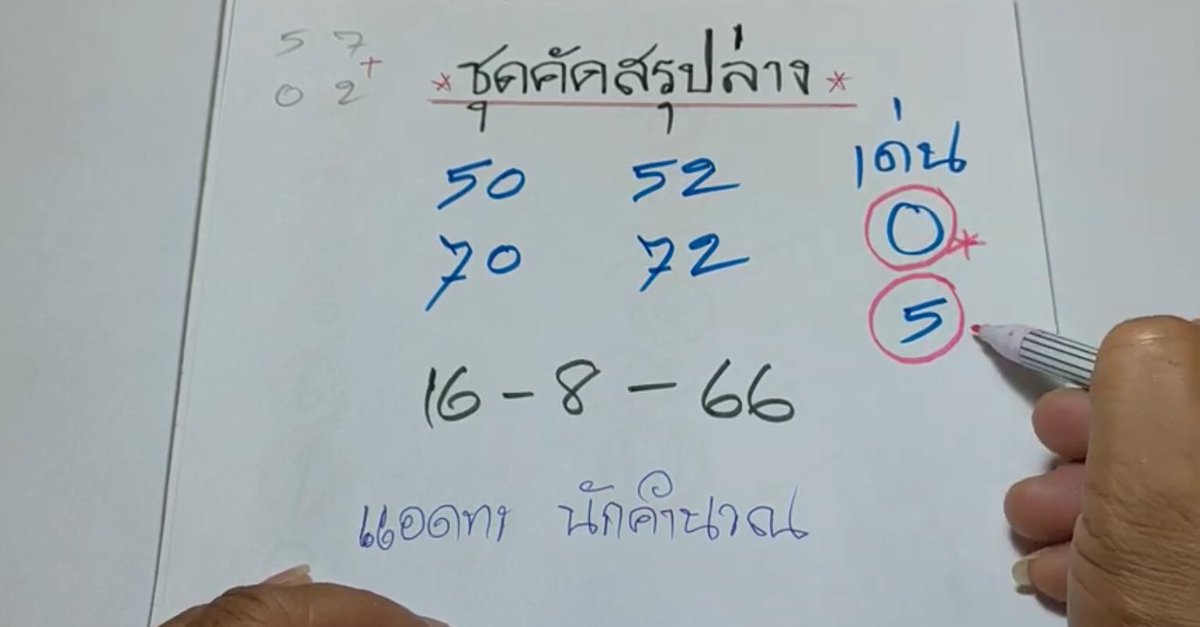 5 7 +
0 2
* ชุดคัดสรุปล่าง *
50 52
70 72
เด่น
0 *
5
16 - 8 - 66
แอดทร นักคำนวณ